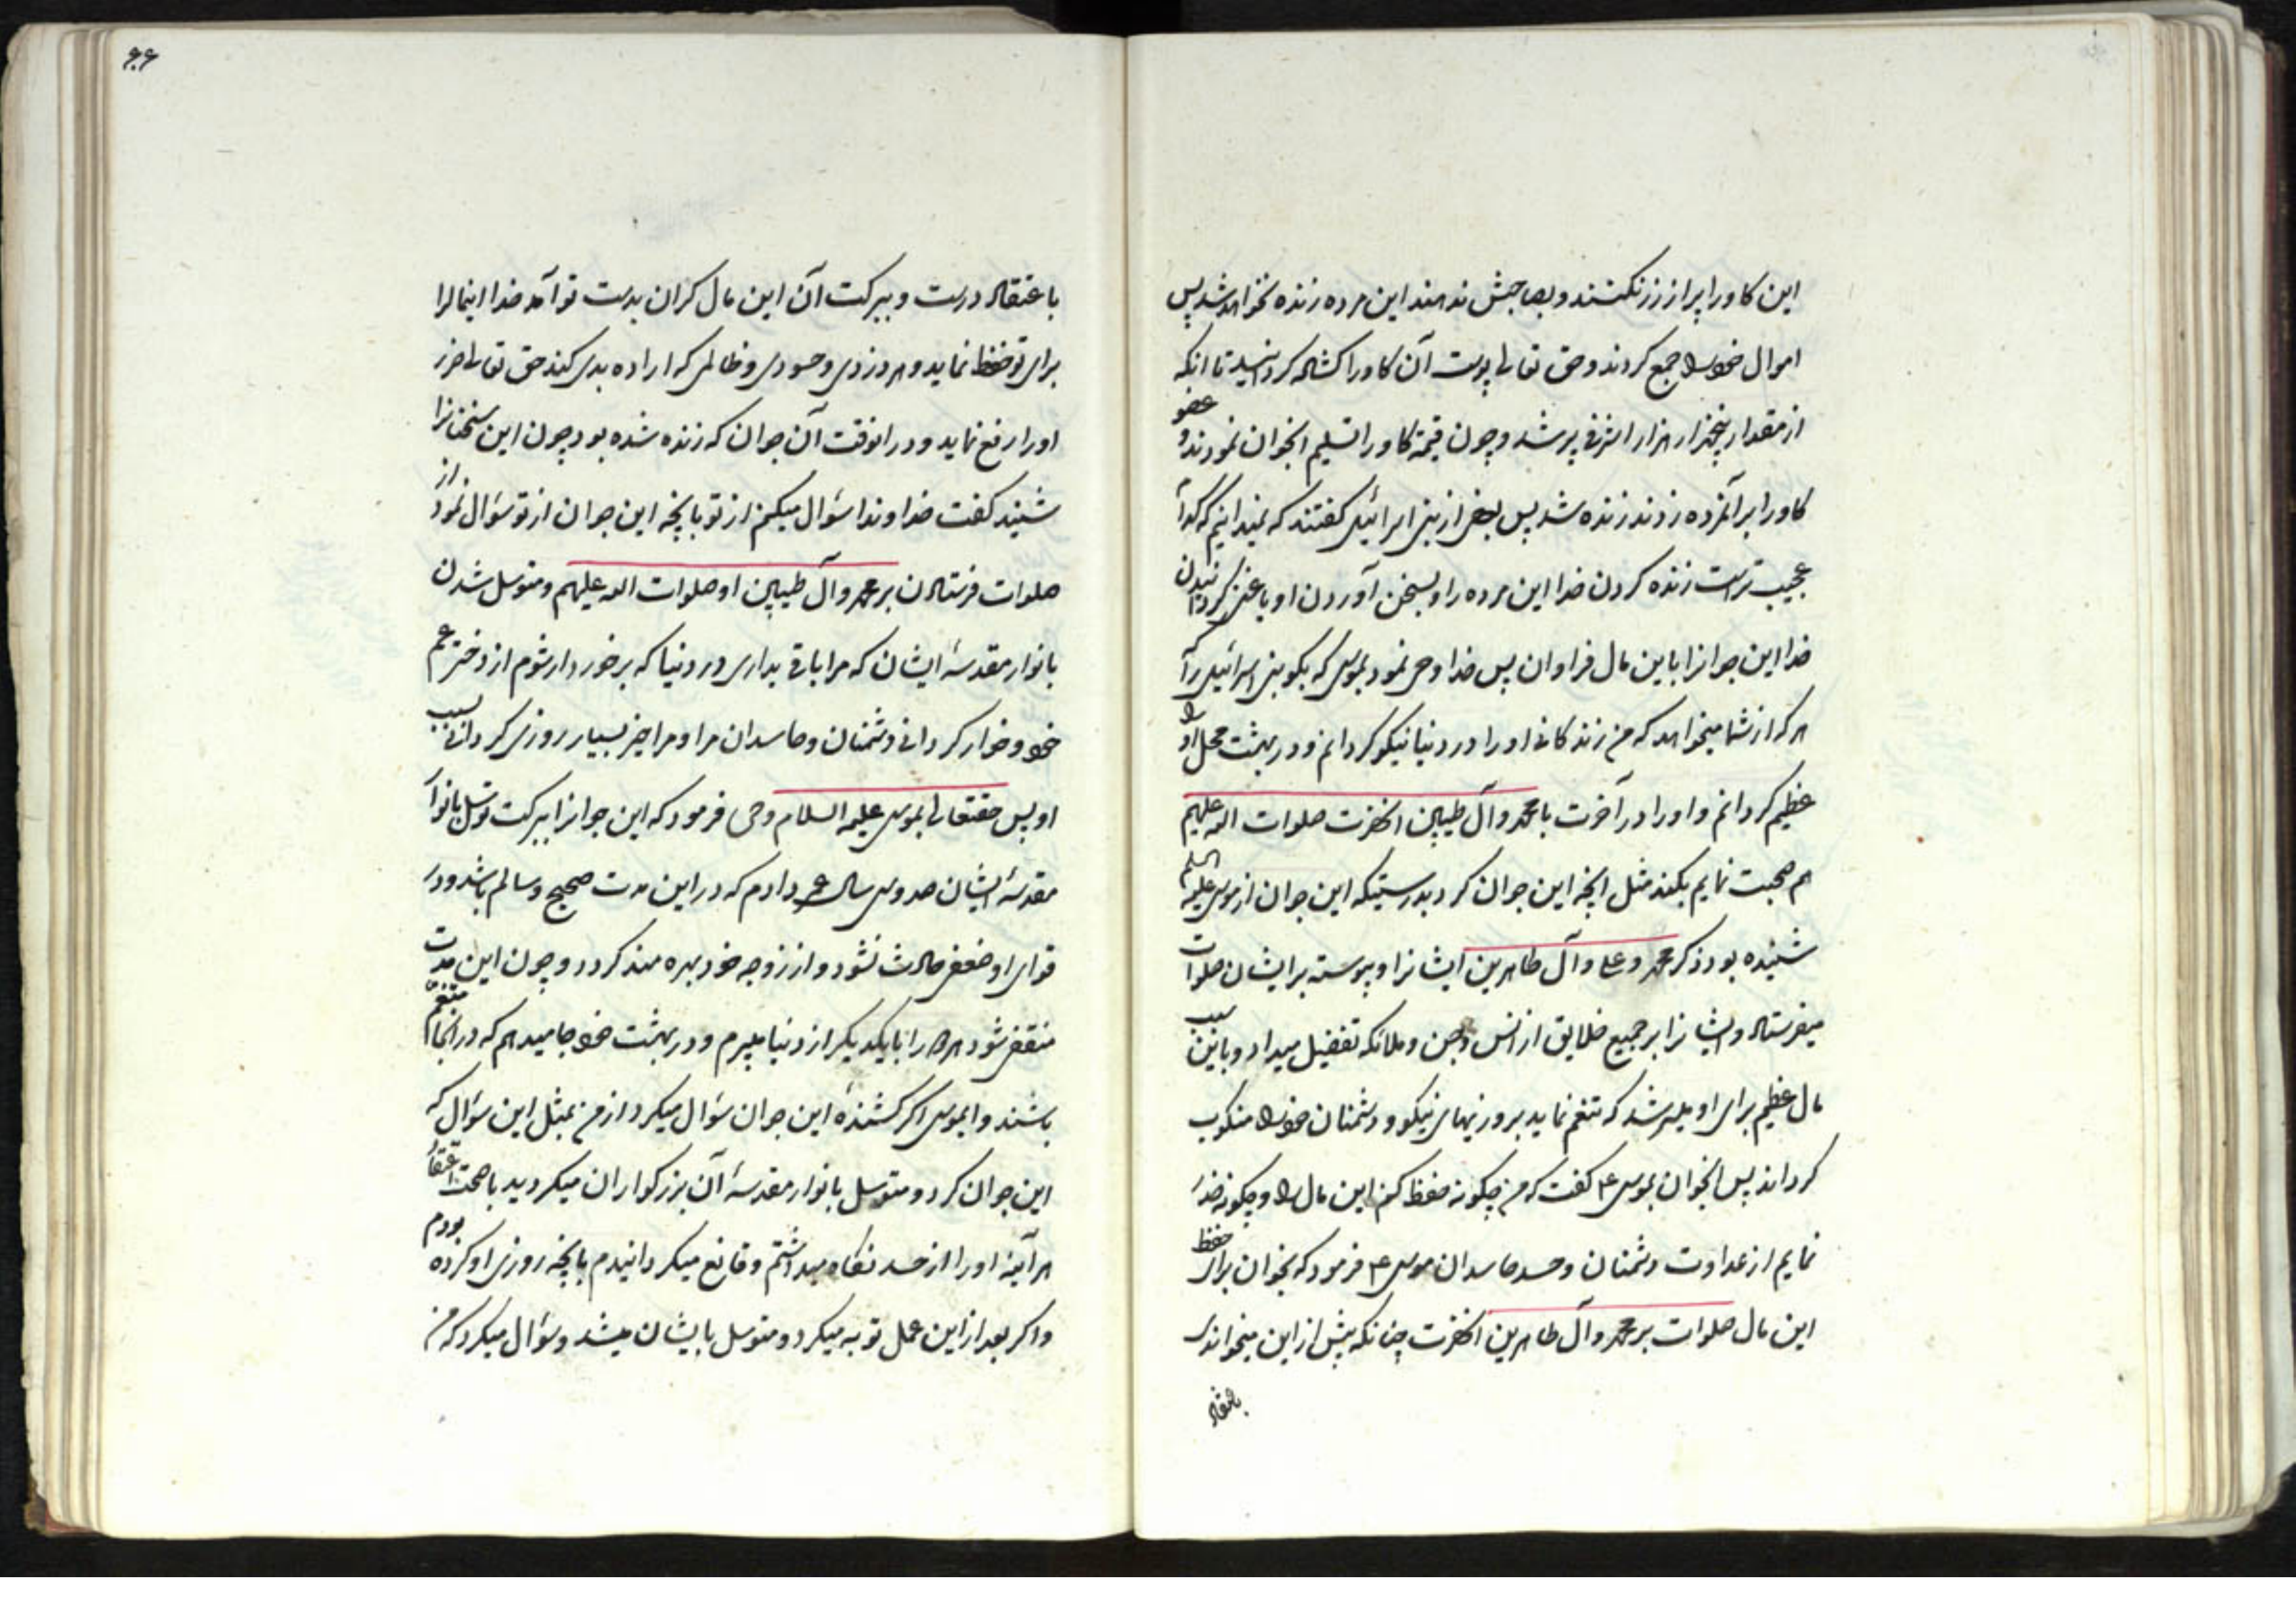 این کاو را پر از زر نکنند و بصاحبش ندهند این مرده زنده نخواهد شد پس
اموال خود را جمع کردند و حق تعالی پوست آن کاو را کشاده کردانید تا آنکه
از مقدار پنجهزار هزار اشرفی پر شد و چون قیمة کاو را تسلیم انجوان نمودند و عضو
کاو را بر آنمرده زدند زنده شد پس بعضی از بنی اسرائیل کفتند که نمیدانیم که کدام
عجیب تر است زنده کردن خدا این مرده را و بسخن آوردن او یا غنی کردانیدن
خدا این جوانرا باین مال فراوان پس خدا وحی نمود بموسی که بکو بنی اسرائیل را که
هر که از شما میخواهد که من زندکانی او را در دنیا نیکو کردانم و در بهشت محل او را
عظیم کردانم و او را در آخرت با محمد و آل طیبین انحضرت صلوات الله علیهم
هم صحبت نمایم بکند مثل انچه این جوان کرد بدرستیکه این جوان از موسی علیه السلم
شنیده بود ذکر محمد و علی و آل طاهرین ایشانرا و پیوسته بر ایشان صلوات
میفرستاد و ایشانرا بر جمیع خلایق از انس و جن و ملائکه تفضیل میداد و باین سبب
مال عظیم برای او میسر شد که تنعم نماید بروزیهای نیکو و دشمنان خود را منکوب
کرداند پس انجوان بموسی ع کفت که من چکونه حفظ کنم این مال را و چکونه حذر
نمایم از عداوت دشمنان و حسد حاسدان موسی ع فرمود که بخوان برای حفظ
این مال صلوات بر محمد و آل طاهرین انحضرت چنانکه پیش از این میخواندی
باعتقاد
۶۶
باعتقاد درست و ببرکت آن این مال کران بدست تو آمد خدا اینمالرا
برای تو حفظ نماید و هر دزدی و حسودی و ظالمی که اراده بدی کند حق تعالی ضرر
او را رفع نماید و در انوقت آن جوان که زنده شده بود چون این سخنانرا
شنید کفت خداوندا سؤال میکنم از تو بانچه این جوان از تو سؤال نمود از
صلوات فرستادن بر محمد و آل طیبین او صلوات الله علیهم و متوسل شدن
بانوار مقدسۀ ایشان که مرا باقی بداری در دنیا که برخوردار شوم از دختر عم
خود و خوار کردانی دشمنان و حاسدان مرا و مرا خیر بسیار روزی کردانی بسبب
او پس حقتعالی بموسی علیه السلام وحی فرمود که این جوانرا ببرکت توسل بانوار
مقدسۀ ایشان صد و سی سال عمر دادم که در این مدت صحیح و سالم باشد و در
قوای او ضعفی حادث نشود و از زوجه خود بهره مند کردد و چون این مدت
منقضی شود هر دو را با یکدیکر از دنیا میبرم و در بهشت خود جا میدهم که در انجا متنعم
باشند و ایموسی اکر کشندۀ این جوان سؤال میکرد از من بمثل این سؤال که
این جوان کرد و متوسل بانوار مقدسۀ آن بزرکواران میکردید با صحت اعتقاد
هر آینه او را از حسد نکاه میداشتم و قانع میکردانیدم بانچه روزی او کرده بودم
و اکر بعد از این عمل توبه میکرد و متوسل بایشان میشد و سؤال میکرد که من